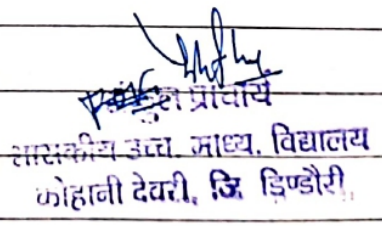 प्राचार्य
शासकीय उच्च. माध्य. विद्यालय
कोहानी देवरी, जि डिण्डौरी